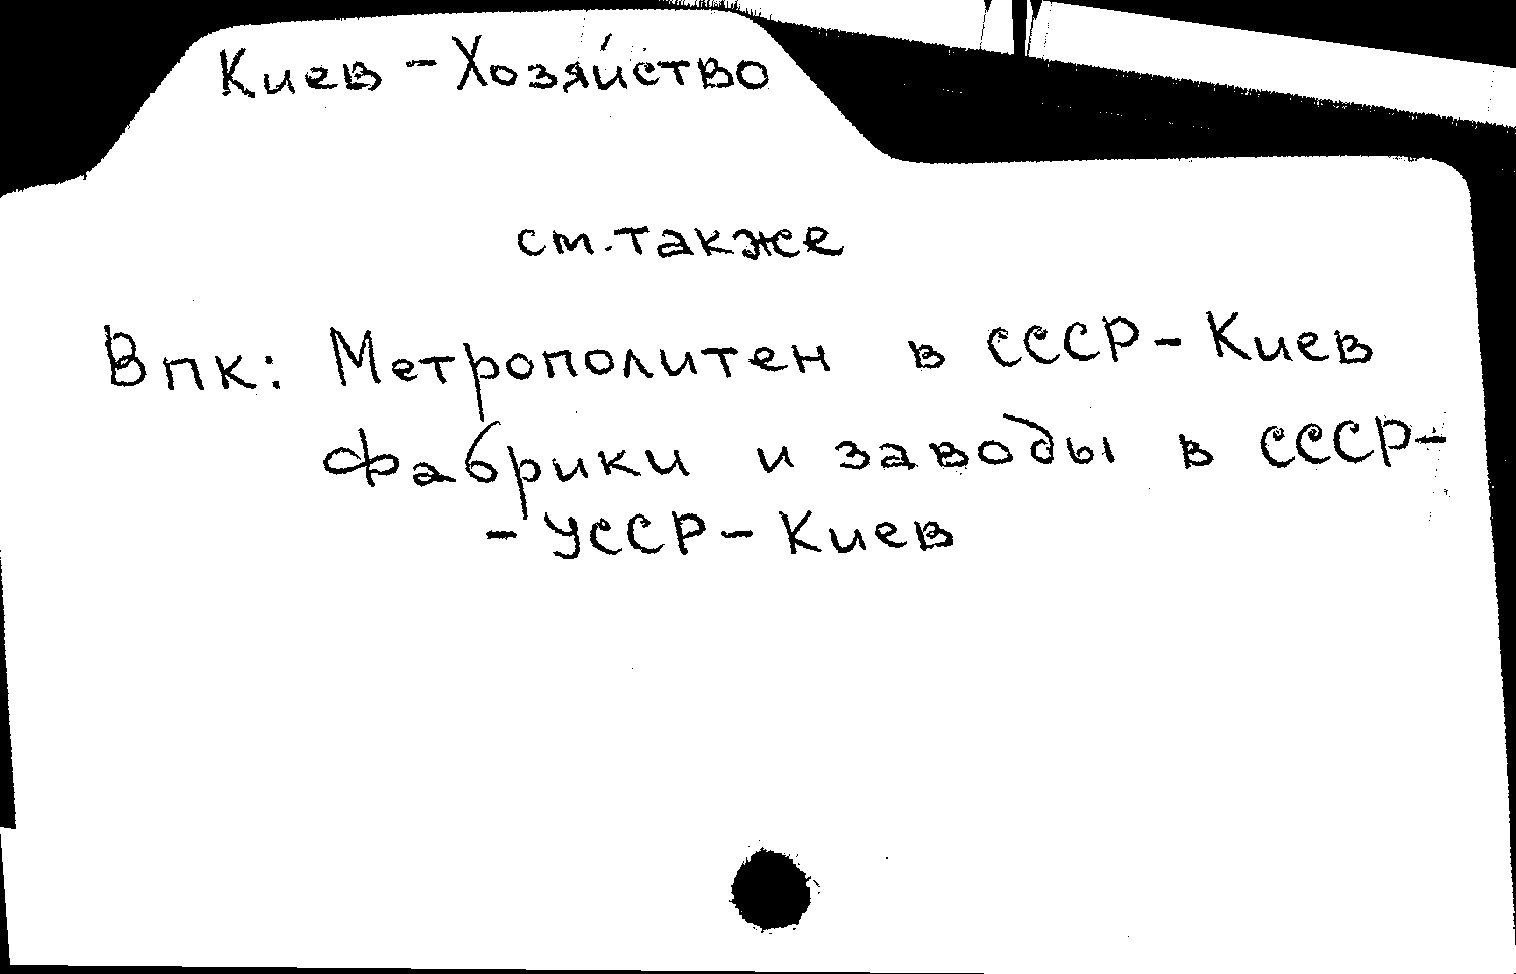 Киев - Хозяйство
см. также
Впк: Метрополитен в СССР - Киев
Фабрики и заводы в СССР -
- УССР - Киев